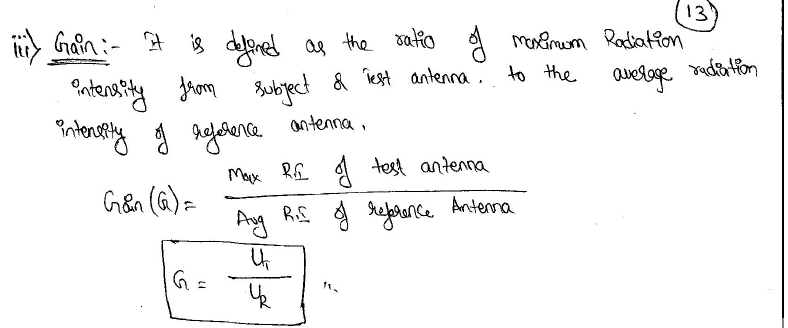 13
iii) Gain :- It is defined as the ratio of maximum Radiation
intensity from subject & Test antenna. to the average radiation
intensity of reference antenna.
Gain (G) = Max R.I of test antenna / Avg R.I of reference Antenna
G = U_T / U_R